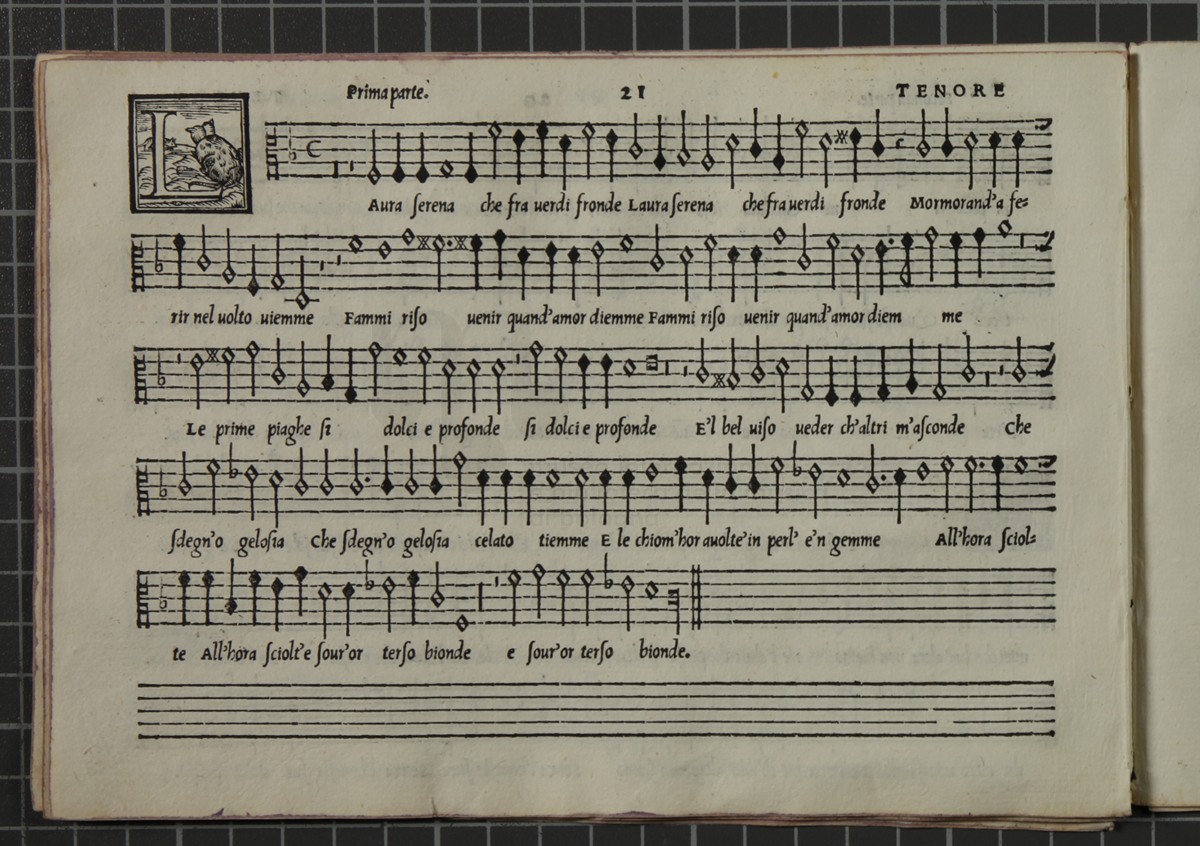 Prima parte. 21 TENORE
L Aura ſerena che fra uerdi fronde Laura ſerena che fra uerdi fronde Mormorand'a fe=
rir nel uolto uiemme Fammi riſo uenir quand'amor diemme Fammi riſo uenir quand'amor diem me
Le prime piaghe ſi dolci e profonde ſi dolci e profonde E'l bel uiſo ueder ch'altri m'aſconde Che
ſdegn'o geloſia Che ſdegn'o geloſia celato tiemme E le chiom'hor auolte'in perl' e'n gemme All'hora ſciol=
te All'hora ſciolt'e ſour'or terſo bionde e ſour'or terſo bionde.